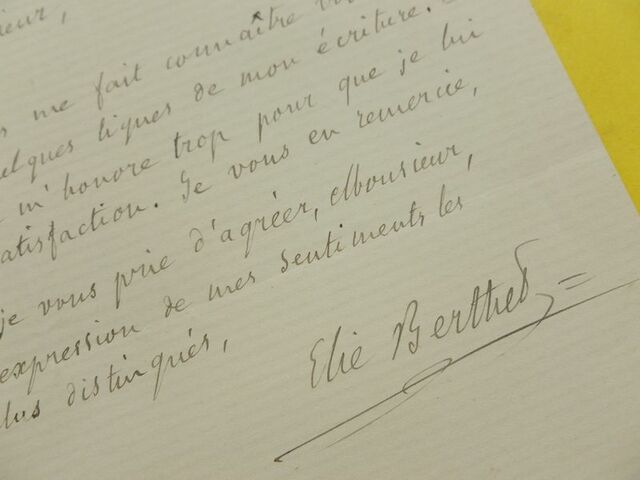 ieur,
me fait connaître
elques lignes de mon écriture.
m'honore trop pour que je lui
atisfaction. Je vous en remercie,
Je vous prie d'agréer, Monsieur,
expression de mes sentiments les
lus distingués,
Elie Berthet